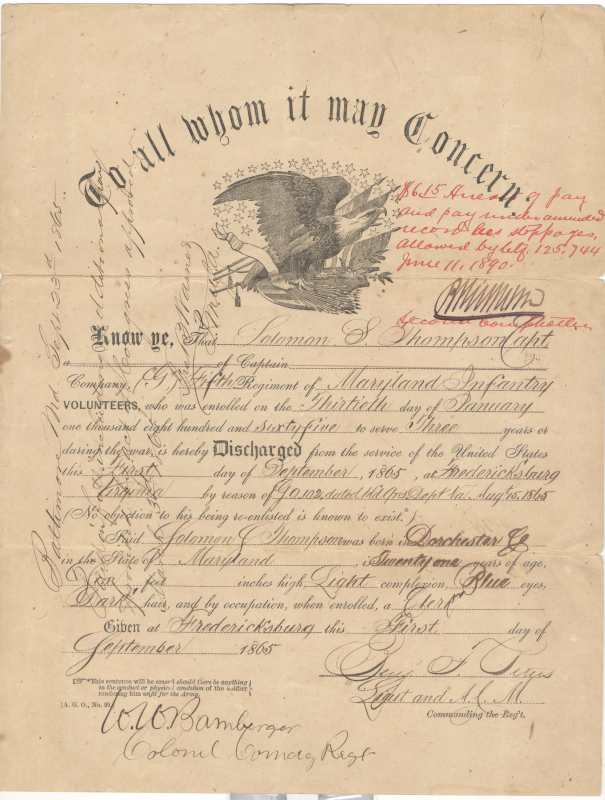 To all whom it may Concern
$6.15 Arrears of pay
and pay under amended
record less stoppages,
allowed by 125,744
June 11, 1890.
Second Comptroller
Know ye, That Solomon S. Thompson Capt
a of Captain
Company, (G,) Fifth Regiment of Maryland Infantry
VOLUNTEERS, who was enrolled on the Thirtieth day of January
one thousand eight hundred and sixty five to serve Three years or
during the war, is hereby Discharged from the service of the United States
this First day of September, 1865, at Fredericksburg
Virginia by reason of G.O. 102, dated Hd. Qrs. Dept Va. Aug 15, 1865
(No objection to his being re-enlisted is known to exist.*)
Said Solomon S. Thompson was born in Dorchester Co
in the State of Maryland is Twenty one years of age,
feet inches high, Light complexion, Blue eyes,
Dark hair, and by occupation, when enrolled, a Clerk
Given at Fredericksburg this First day of
September 1865
*This sentence will be erased should there be anything
in the conduct or physical condition of the soldier
rendering him unfit for the Army.
[A. G. O., No. 99.]
W. W. Bamberger
Colonel Comdg Regt
Benj. F.
Lieut and A.C.M.
Commanding the Reg't.
Baltimore Md. Sept. 23d 1865